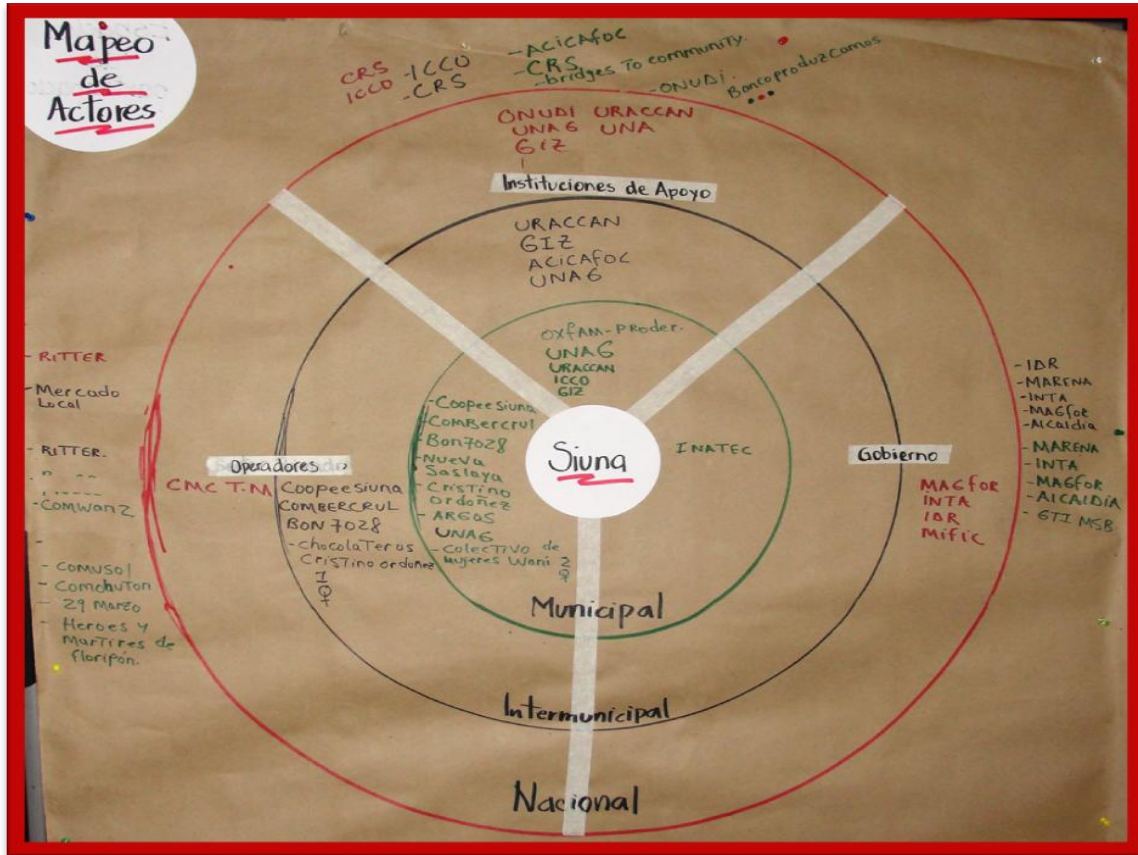 Mapeo
de
Actores
CRS
ICCO
-ICCO
-CRS
-ACICAFOC
-CRS
-bridges To community.
-ONUDI.
Bancoproduzcamos
ONUDI URACCAN
UNAG UNA
GIZ
Instituciones de Apoyo
URACCAN
GIZ
ACICAFOC
UNAG
OXFAM-PRODER.
UNAG
URACCAN
ICCO
GIZ
Siuna
- RITTER
-Mercado
Local
- RITTER.
-COMWANZ
- COMUSOL
- Comchuton
- 29 Marzo
- Heroes y
Martires de
floripón.
Operadores
CMC T.M
Coopeesiuna
COMBERCRUL
BON 7028
-Chocolateras
Cristino ordoñez
-Coopeesiuna
-Combercrul
-Bon7028
-Nueva
Saslaya
-Cristino
ordoñez
-ARGOS
UNAG
-Colectivo de
mujeres Wani
INATEC
Gobierno
MAGfor
INTA
IDR
Mific
-IDR
-MARENA
-INTA
-MAGfor
-Alcaldia
-MARENA
-INTA
-MAGfor
-ALCALDÍA
-GTI MSB
Municipal
Intermunicipal
Nacional